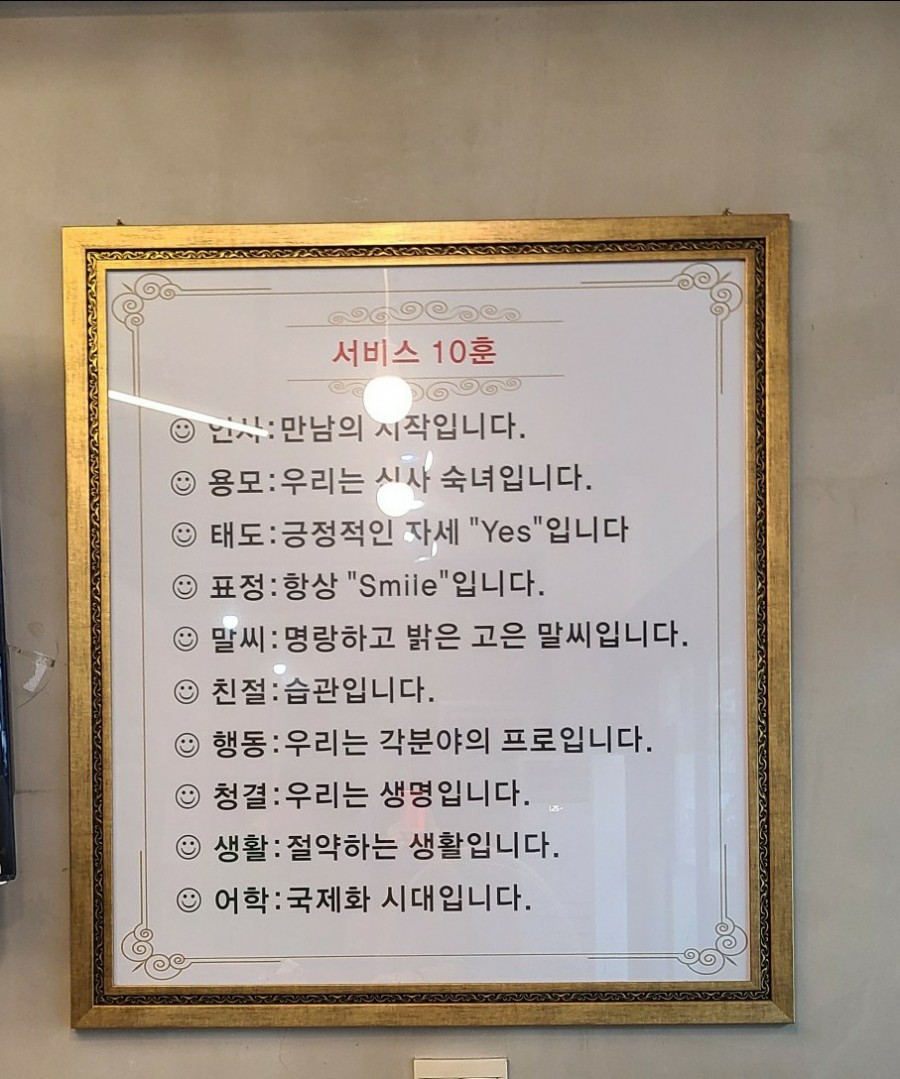 서비스 10훈
☺ 인사:만남의 시작입니다.
☺ 용모:우리는 신사 숙녀입니다.
☺ 태도:긍정적인 자세 "Yes"입니다
☺ 표정:항상 "Smile"입니다.
☺ 말씨:명랑하고 밝은 고은 말씨입니다.
☺ 친절:습관입니다.
☺ 행동:우리는 각분야의 프로입니다.
☺ 청결:우리는 생명입니다.
☺ 생활:절약하는 생활입니다.
☺ 어학:국제화 시대입니다.